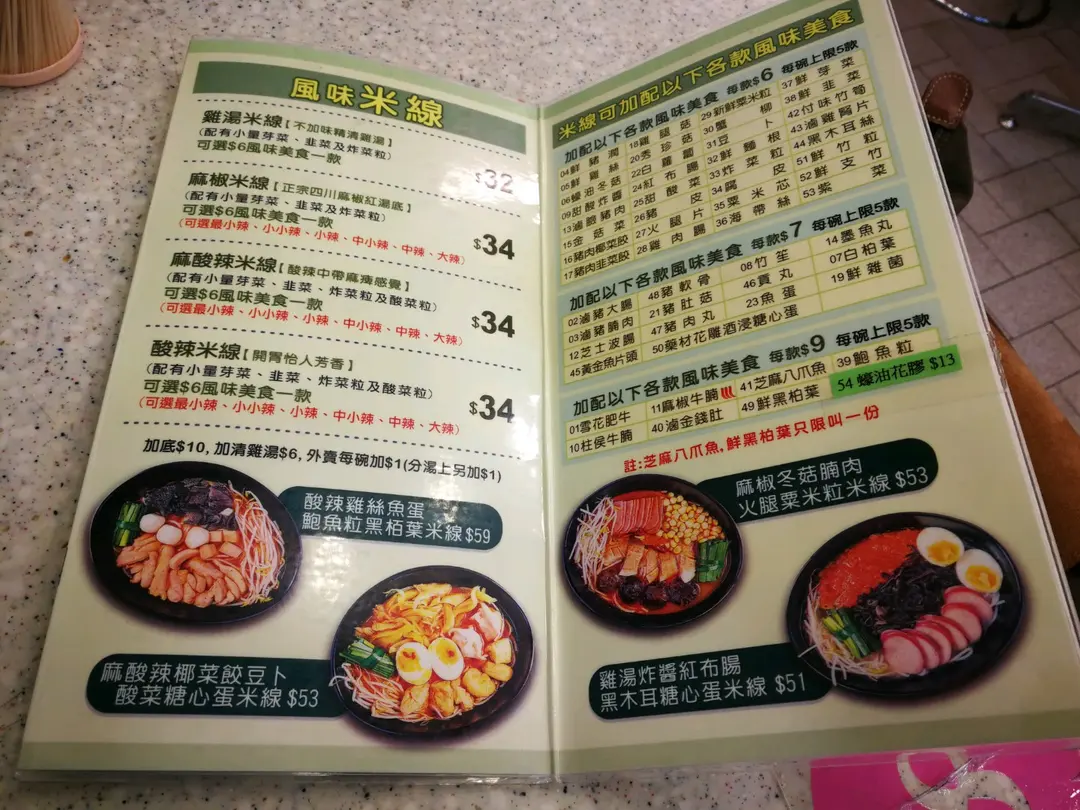 風味米線
雞湯米線【不加味精清雞湯】
(配有小量芽菜、韭菜及炸菜粒)
可選$6風味美食一款
$32
麻椒米線【正宗四川麻椒紅湯底】
(配有小量芽菜、韭菜及炸菜粒)
可選$6風味美食一款
(可選最小辣、小小辣、小辣、中小辣、中辣、大辣)
$34
麻酸辣米線【酸辣中帶麻痺感覺】
(配有小量芽菜、韭菜、炸菜粒及酸菜粒)
可選$6風味美食一款
(可選最小辣、小小辣、小辣、中小辣、中辣、大辣)
$34
酸辣米線【開胃怡人芳香】
(配有小量芽菜、韭菜、炸菜粒及酸菜粒)
可選$6風味美食一款
(可選最小辣、小小辣、小辣、中小辣、中辣、大辣)
$34
加底$10, 加清雞湯$6, 外賣每碗加$1(分湯上另加$1)
酸辣雞絲魚蛋
鮑魚粒黑栢葉米線 $59
麻酸辣椰菜餃豆卜
酸菜糖心蛋米線 $53
米線可加配以下各款風味美食
加配以下各款風味美食 每款$6 每碗上限5款
04鮮豬潤 18雞髀菇 29新鮮粟米粒 37鮮芽菜
05鮮雞絲 20秀珍菇 30蟹柳 38鮮韭菜
06蠔油冬菇 22白蘿蔔 31豆卜 42付味竹筍
09甜酸炸醬 24紅布腸 32鮮麵根 43滷雞腎片
13滷脆豬肉 25酸菜 33炸菜粒 44黑木耳絲
15金菇菜 26豬皮 34腐皮 51鮮竹粒
16豬肉椰菜餃 27火腿片 35粟米芯 52鮮支竹
17豬肉韭菜餃 28雞肉腸 36海帶絲 53紫菜
加配以下各款風味美食 每款$7 每碗上限5款
02滷豬大腸 48豬軟骨 08竹笙 14墨魚丸
03滷豬腩肉 21豬肚菇 46貢丸 07白柏葉
12芝士波腸 47豬肉丸 23魚蛋 19鮮雜菌
45黃金魚片頭 50藥材花雕酒浸糖心蛋
加配以下各款風味美食 每款$9 每碗上限5款
01雪花肥牛 11麻椒牛腩 41芝麻八爪魚 39鮑魚粒
10柱侯牛腩 40滷金錢肚 49鮮黑柏葉 54 蠔油花膠 $13
註:芝麻八爪魚,鮮黑柏葉只限叫一份
麻椒冬菇腩肉
火腿粟米粒米線 $53
雞湯炸醬紅布腸
黑木耳糖心蛋米線 $51